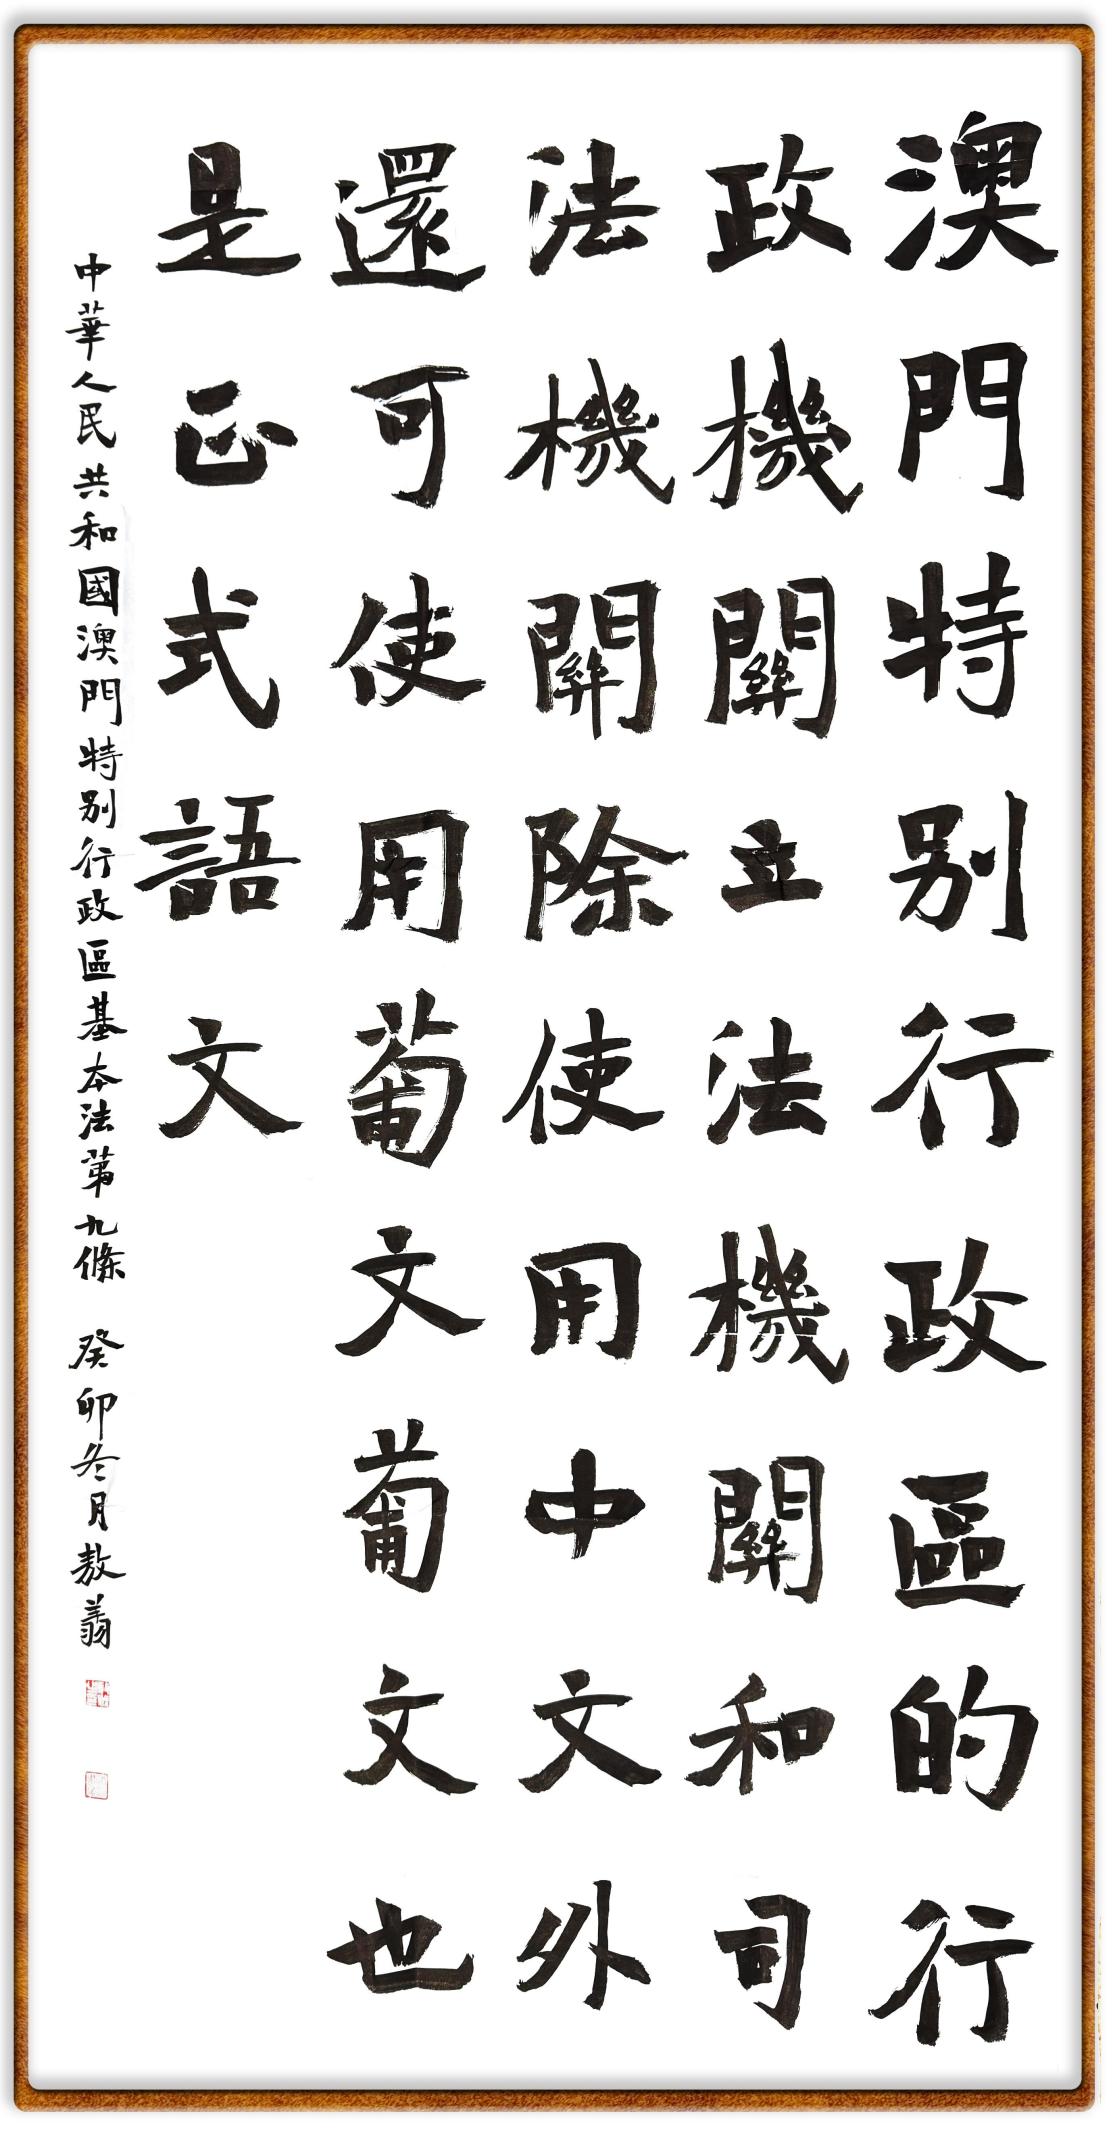 澳門特别行政區的行
政機關立法機關和司
法機關除使用中文外
還可使用葡文葡文也
是正式語文
中華人民共和國澳門特别行政區基本法第九條 癸卯冬月敖翁